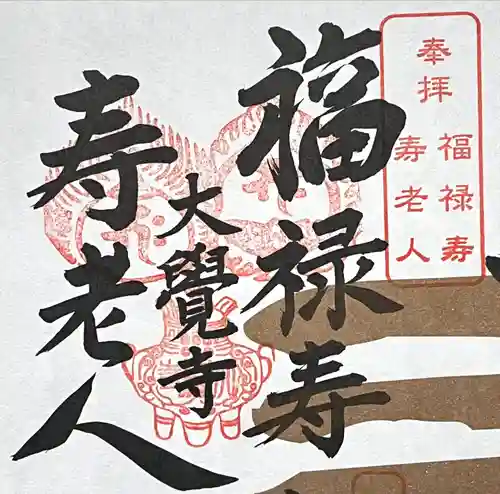 奉拝
福禄寿
寿老人
福禄寿
大覺寺
寿老人